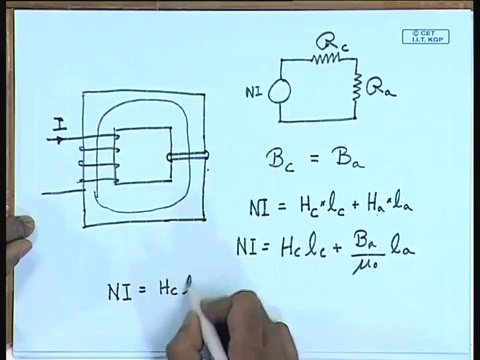 © CET
I.I.T. KGP
R_c
I
NI
R_a
B_c = B_a
NI = H_c * l_c + H_a * l_a
NI = H_c l_c + B_a/μ_0 l_a
NI = H_c l